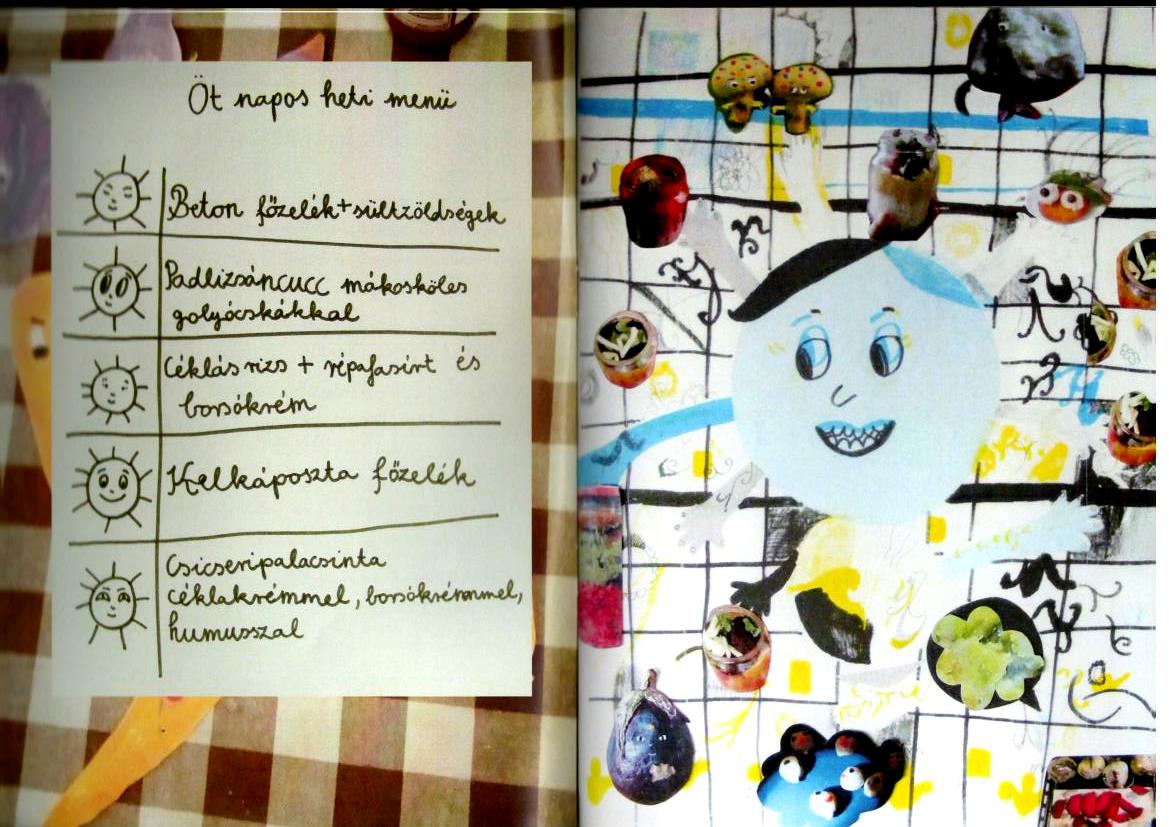 Öt napos heti menü
Beton főzelék + sültzöldségek
Padlizsáncucc mákosköles
golyócskákkal
Céklás rizs + répafasírt és
borsókrém
Kelkáposzta főzelék
Csicseripalacsinta
céklakrémmel, borsókrémmel,
humusszal